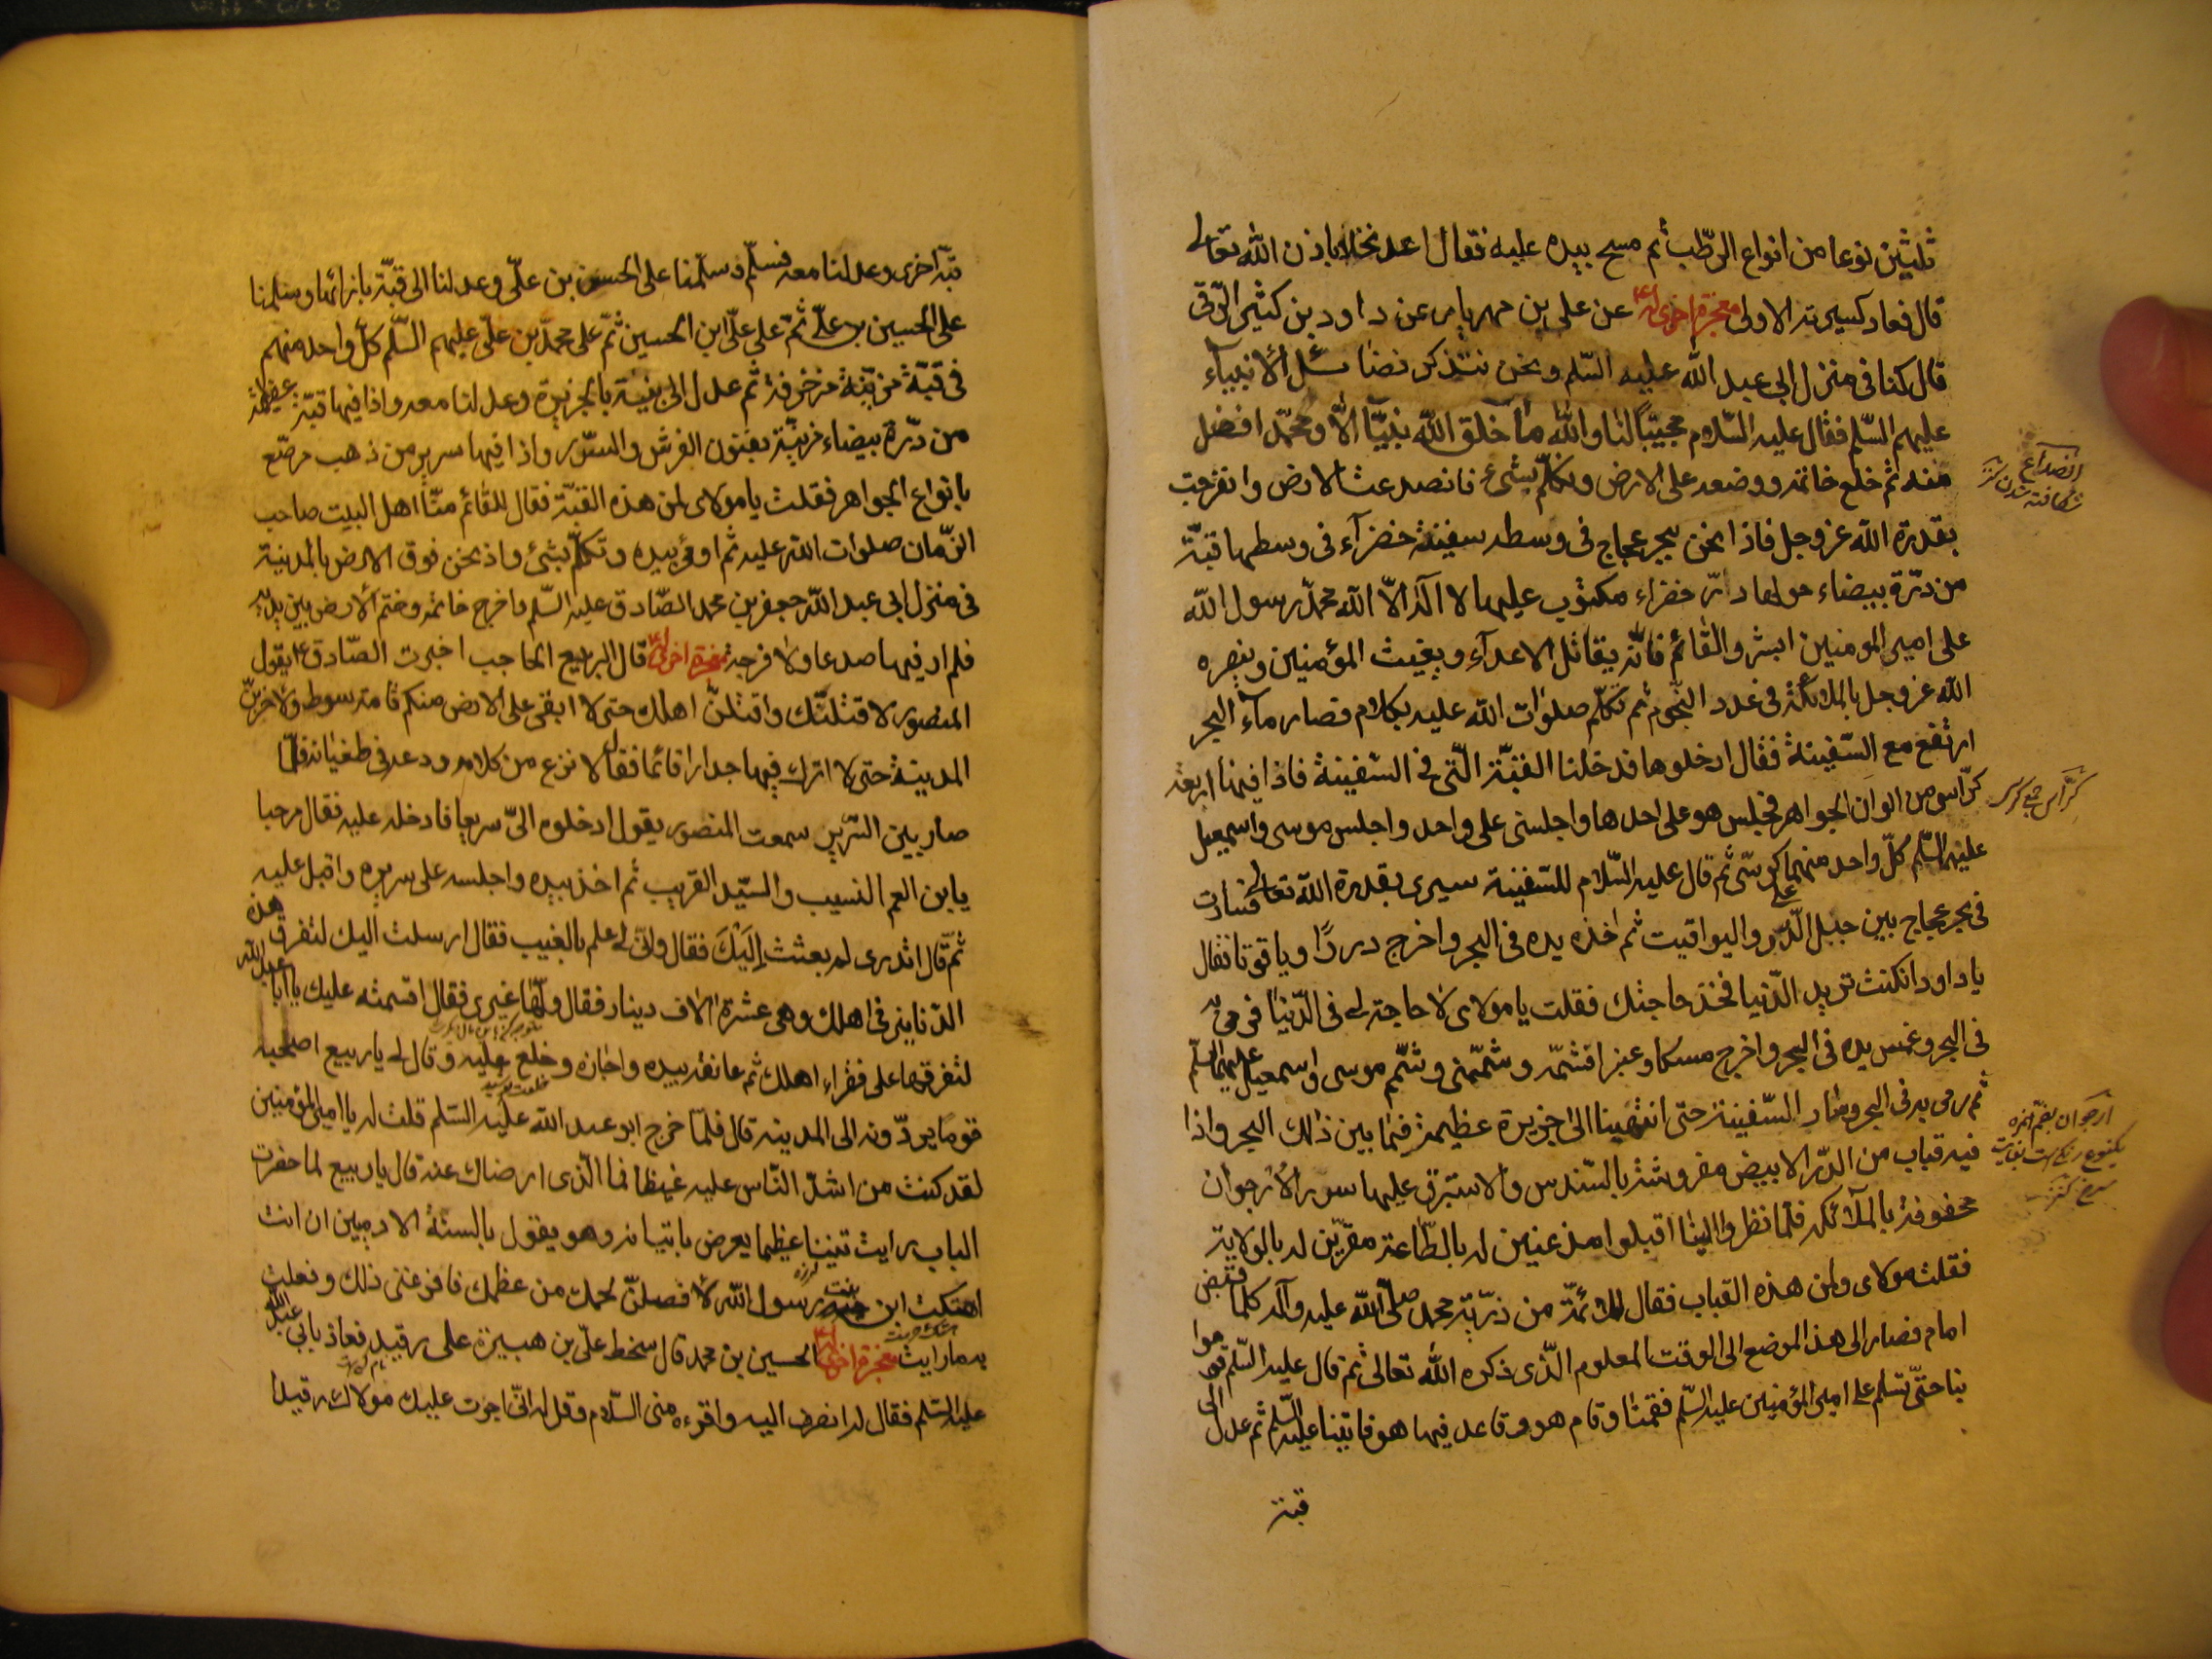 ثلثين نوعا من انواع الرّطب ثم مسح بيده عليه فقال اعد نخلا باذن الله تعالى
قال فعاد كسيرته الاولى معجزة اخرى له عن على بن مهريار عن داود بن كثير الرّقى
قال كنا فى منزل ابى عبد الله عليه السّلم ونحن نتذكر فضائل الانبياء
عليهم السّلم فقال عليه السّلام مجيبًا لنا والله ما خلق الله نبيّا الّا ومحمّد افضل
منه ثم خلع خاتمه ووضعه على الارض وتكلّم بشئ فانصدعت الارض وانفرجت
بقدرة الله عز وجل فاذا نحن ببحر عجاج فى وسطه سفينة خضرآء فى وسطها قبّة
من درّة بيضاء حولها دار خضراء مكتوب عليها لا اله الّا الله محمّد رسول الله
على امير المومنين ابشر والقائم فانّه يقاتل الاعدآء ويغيث المؤمنين وينصره
الله عز وجل بالملائكة فى عدد النّجوم ثم تكلّم صلوات الله عليه بكلام فصار مآء البحر
ارتفع مع السّفينة فقال ادخلوها فدخلنا القبّة الّتى فى السّفينة فاذا فيها اربعة
كرّاسى من الوان الجواهر فجلس هو على احدها واجلسنى على واحد واجلس موسى واسمعيل
عليهما السّلم كلّ واحد منهما على كرسّى ثم قال عليه السّلام للسّفينة سيرى بقدرة الله تعالى فسارت
فى بحر عجاج بين جبل الدّر واليواقيت ثم اخذ يده فى البحر واخرج دررًا وياقوتا فقال
يا داود انكنت تريد الدّنيا فخذ حاجتك فقلت يا مولاى لا حاجة لى فى الدّنيا فرمى به
فى البحر وغمس يده فى البحر واخرج مسكا وعنبرا فشمّه وشمّمنى وشمّم موسى واسمعيل عليهما السّلم
ثم رمى به فى البحر وسارت السّفينة حتى انتهينا الى جزيرة عظيمة فيما بين ذلك البحر واذا
فيه قباب من الدّر الابيض مفروشة بالسّندس والاستبرق عليها ستور الارجوان
محفوفة بالملآئكة فلما نظروا الينا اقبلوا مذعنين له بالطّاعة مقرّين له بالولاية
فقلت مولاى ولمن هذه القباب فقال للائمّة من ذرّية محمد صلّى الله عليه وآله كلما قبض
امام فصار الى هذا الموضع الى الوقت المعلوم الّذى ذكره الله تعالى ثم قال عليه السّلم قوموا
بنا حتّى نسلم على امير المؤمنين عليه السّلم فقمنا وقام هو وقاعد فيها هو فاتينا عليه السّلم ثم عدل الى
قبة
انصداع
شكافته شدن
كرّاسى جمع كرسى
ارجوان بضم همزه
قبّة اخرى وعدلنا معه فسلّم وسلّمنا على الحسن بن علّى وعدلنا الى قبّة بازائها وسلمنا
على الحسين بن علّى ثمّ على علّى ابن الحسين ثمّ على محمّد بن علّى عليهم السّلم كلّ واحد منهم
فى قبّة مزيّنة مزخرفة ثم عدل الى بقية بالجزيرة وعدلنا معه واذا فيها قبّة عظيمة
من درّة بيضاء مزيّنة بفنون الفرش والستور واذا فيها سرير من ذهب مرصّع
بانواع الجواهر فقلت يا مولاى لمن هذه القبّة فقال للقائم منّا اهل البيت صاحب
الزّمان صلوات الله عليه ثم اومى بيده وتكلّم بشئ واذ نحن فوق الارض بالمدينة
فى منزل ابى عبد الله جعفر بن محمد الصّادق عليه السّلم فاخرج خاتمه وختم الارض بين يديه
فلم ار فيها صدعا ولا فرجة معجزة اخرى له قال الربيع الحاجب اخبرت الصّادق ع بقول
المنصور لاقتلنّك واقتلنّ اهلك حتى لا ابقى على الارض منكم قامة سوط ولاخربنّ
المدينة حتى لا اترك فيها جدارا قائما فقال لا تزع من كلامه ودعه فى طغيانه فلمّا
صار بين السّترين سمعت المنصور يقول ادخلوه الىّ سريعا فادخله عليه فقال مرحبا
يابن العم النسيب والسّيد القريب ثم اخذ بيده واجلسه على سريره واقبل عليه
ثمّ قال اتدرى لم بعثت اِلَيْكَ فقال وانّى لى علم بالغيب فقال ارسلت اليك لتفرق هذه
الدّنانير فى اهلك وهى عشرة الاف دينار فقال ولّها غيرى فقال اقسمت عليك يا ابا عبد الله
لتفرقها على فقراء اهلك ثم عانقه بيده واجازه وخلع عليه وقال لى يا ربيع اصحبه
قوما يردّونه الى المدينه قال فلمّا خرج ابو عبد الله عليه السّلم قلت له يا امير المؤمنين
لقد كنت من اشدّ النّاس عليه غيظا فما الّذى ارضاك عنه قال يا ربيع لما حضرت
الباب رايت تنينا عظيما يعرض بانيابه وهو يقول بالسنة الادميين ان انت
اشكت ابن بنت رسول الله لافصلنّ لحمك من عظمك فافزعنى ذلك وفعلت
به ما رايت معجزة اخرى له الحسين بن محمد قال سخط علّى بن هبيرة على رقيد فعاذ بابى عبد الله
عليه السّلم فقال له انصرف اليه واقرءه منى السّلام وقل له انّى اجرت عليك مولاك رقيدا